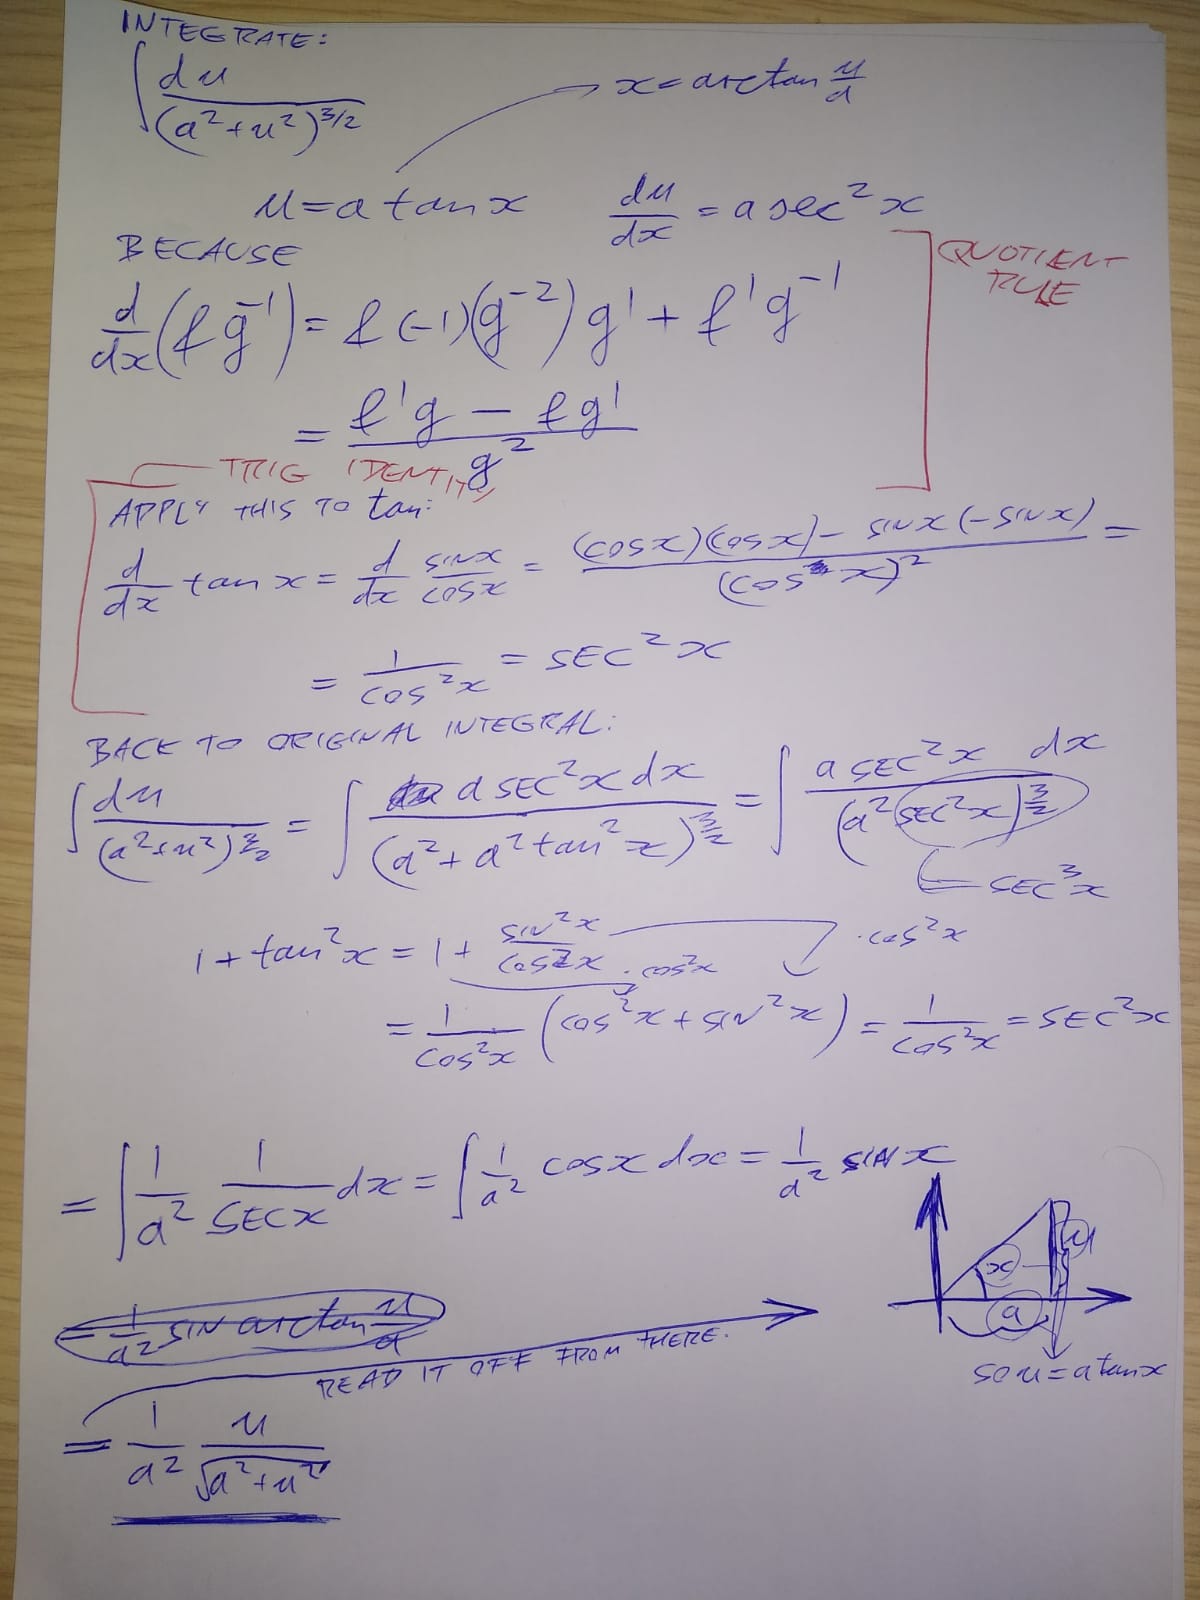 INTEGRATE:
∫ du/(a²+u²)^3/2
x = arctan u/a
u = a tan x    du/dx = a sec² x
BECAUSE
QUOTIENT RULE
d/dx (f g⁻¹) = f (-1)(g⁻²) g' + f' g⁻¹
= (f'g - fg')/g²
TRIG IDENTITY
APPLY THIS TO tan:
d/dx tan x = d/dx sin x/cos x = ((cos x)(cos x) - sin x (-sin x))/(cos x)² =
= 1/cos² x = SEC² x
BACK TO ORIGINAL INTEGRAL:
∫ du/(a²+u²)^3/2 = ∫ a SEC² x dx/(a² + a² tan² x)^3/2 = ∫ a SEC² x dx/(a² SEC² x)^3/2
SEC³ x
1 + tan² x = 1 + sin² x/cos² x · cos² x
· cos² x
= 1/cos² x (cos² x + sin² x) = 1/cos² x = SEC² x
= ∫ 1/a² 1/SEC x dx = ∫ 1/a² cos x dx = 1/a² SIN x
x
u
a
so u = a tan x
= 1/a² SIN arctan u/a
READ IT OFF FROM THERE.
= 1/a² u/√(a²+u²)